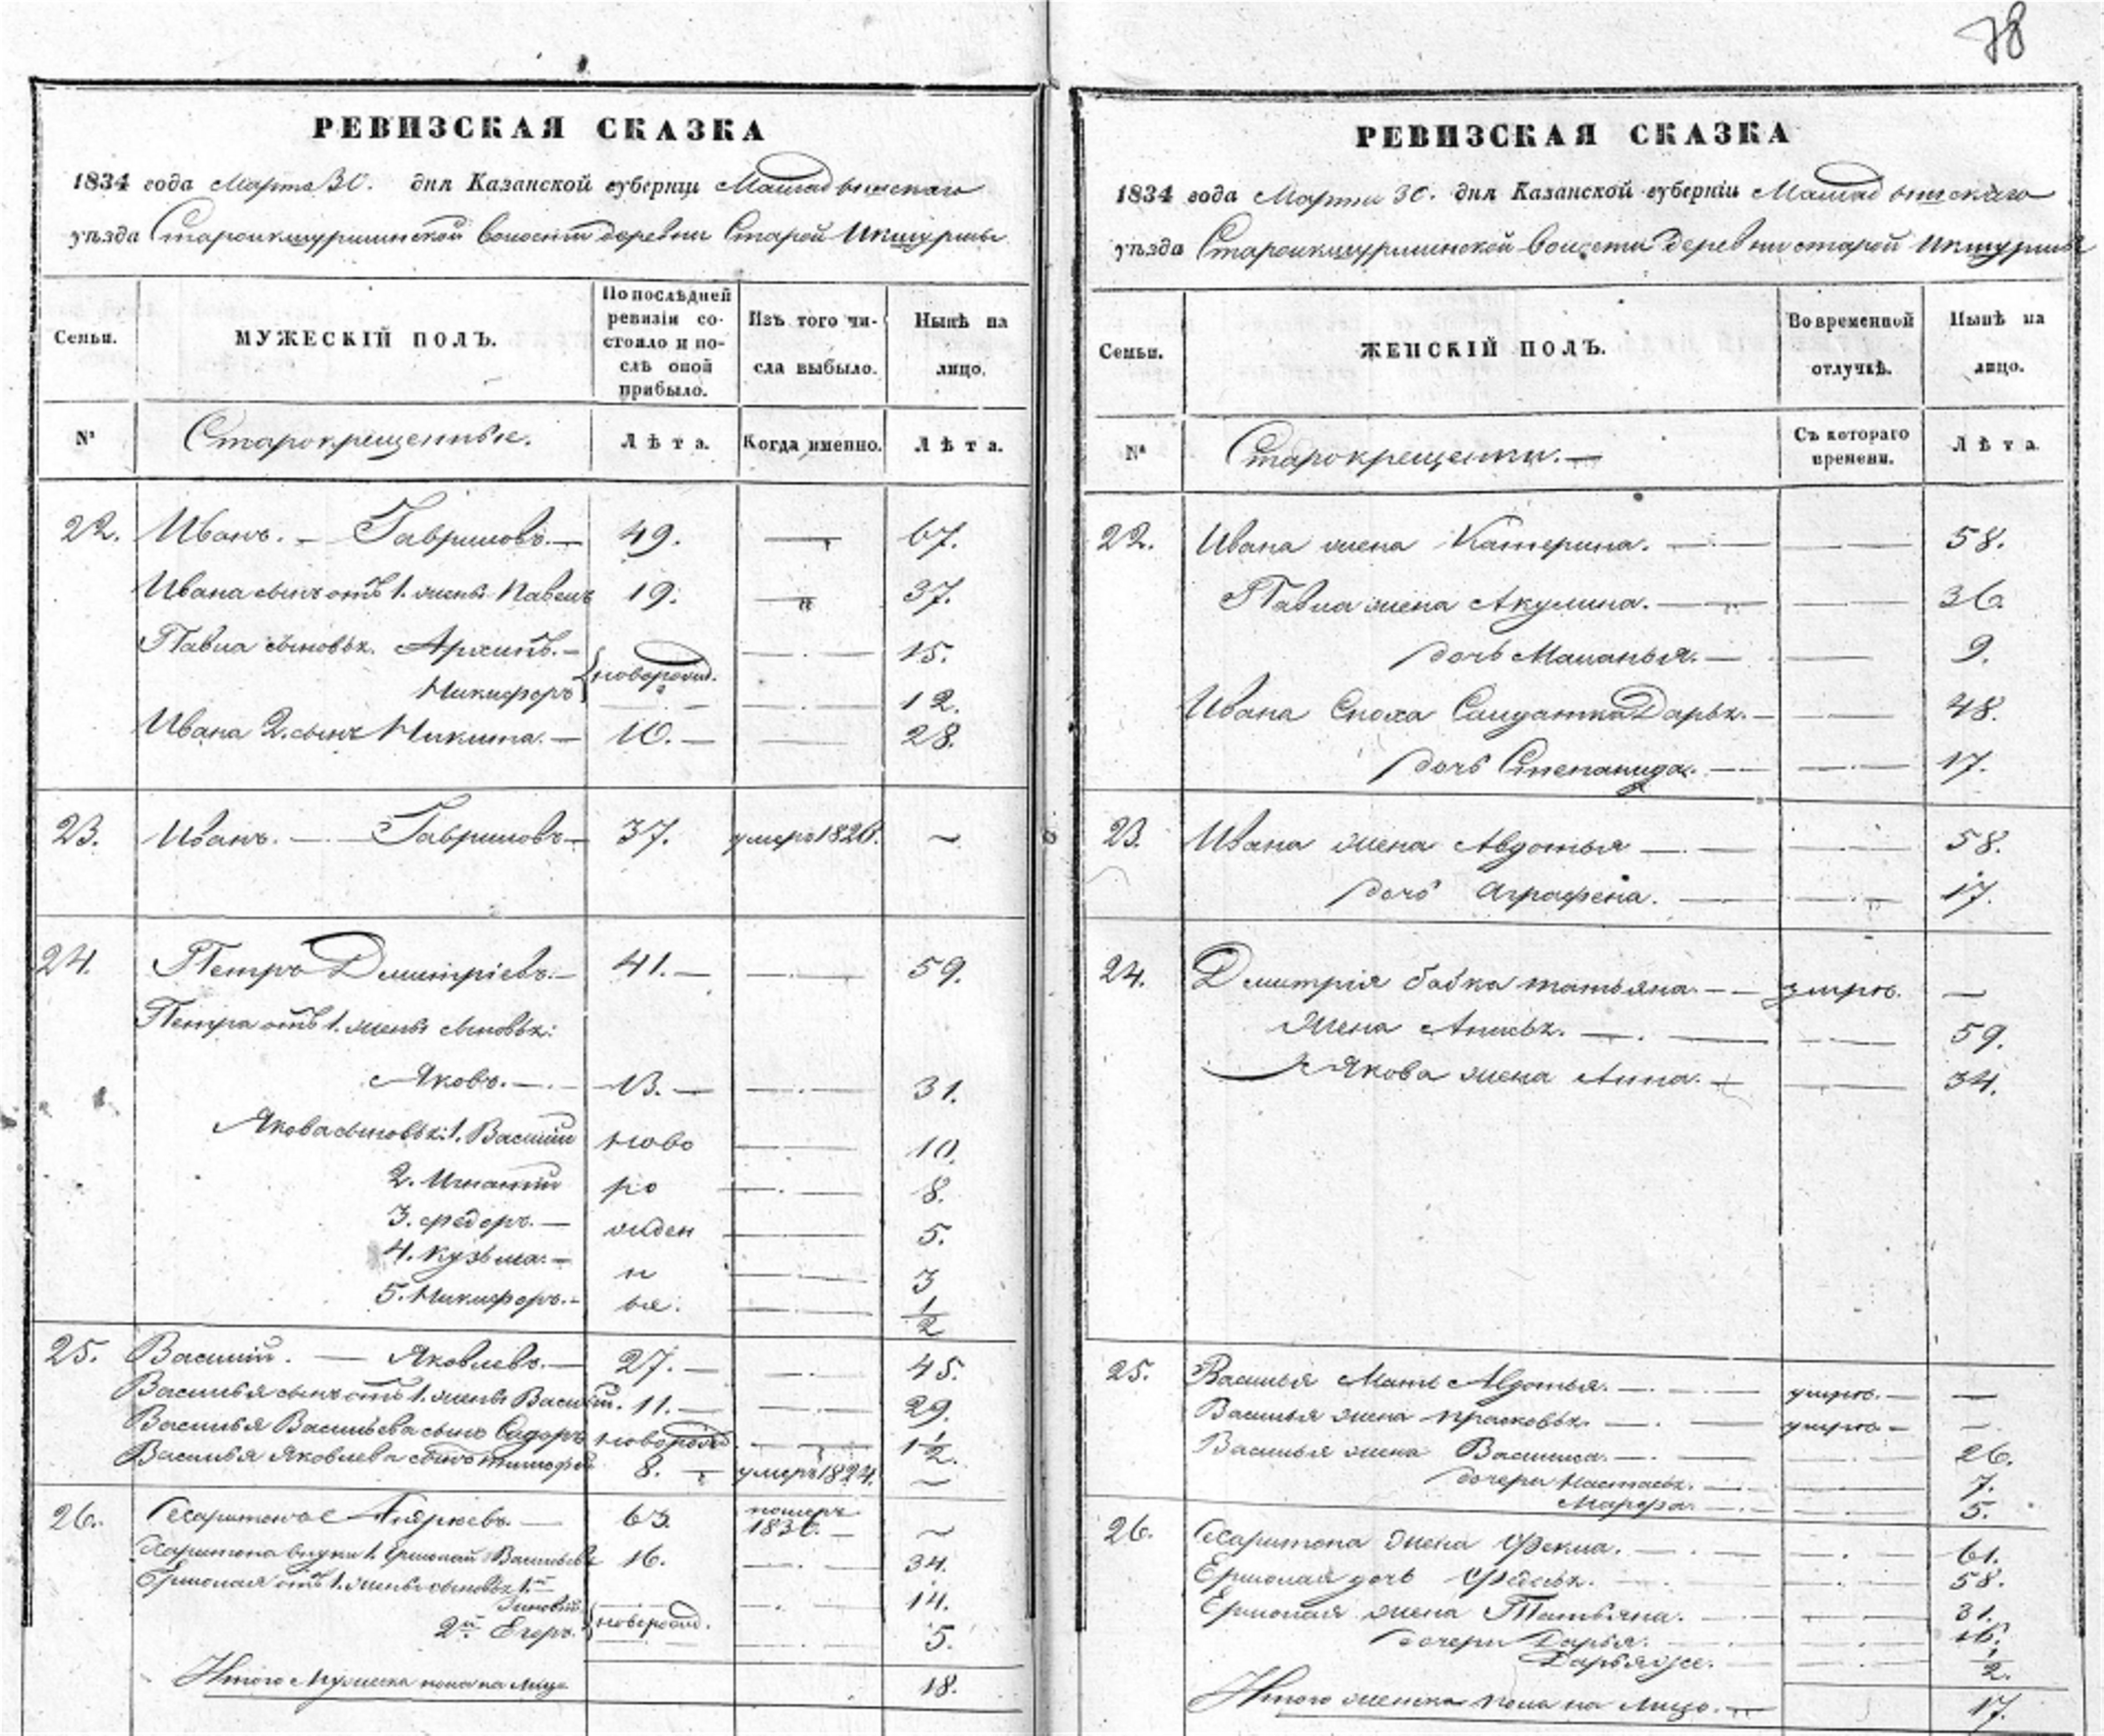 78
РЕВИЗСКАЯ СКАЗКА
1834 года Марта 30. дня Казанской губерніи Мамадышскаго
уѣзда Староикшурминской волости деревни Старой Икшурмы
Семьи.
МУЖЕСКІЙ ПОЛЪ.
По послѣдней ревизіи состояло и послѣ оной прибыло.
Изъ того числа выбыло.
Нынѣ на лицо.
№
Старокрещенные.
Лѣта.
Когда именно.
Лѣта.
22. Иванъ. — Гавриловъ. — 49. — 67.
Ивана сынъ отъ 1. жены Павелъ 19. — 37.
Павла сыновья. Архипъ. — новорожд. — 15.
Никифоръ — 12.
Ивана 2. сынъ Никита. — 10. — 28.
23. Иванъ. — Гавриловъ — 37. умеръ 1826. —
24. Петръ Дмитріевъ. — 41. — 59.
Петра отъ 1. жены сыновья:
Яковъ. — 13. — 31.
Якова сыновья: 1. Василій ново — 10.
2. Игнатій ро — 8.
3. Федоръ. — жден — 5.
4. Кузьма. — н — 3
5. Никифоръ. — ые. — 1/2
25. Василій. — Яковлевъ. — 27. — 45.
Василья сынъ отъ 1. жены Василій. 11. — 29.
Василья Васильева сынъ Сидоръ новорожд — 1 1/2.
Василья Яковлева сынъ Тимофей 8. — умеръ 1824. —
26. Харитонъ Андреевъ. — 63. померъ 1830. — —
Харитона внуки 1. Ермолай Васильевъ 16. — 34.
Ермолая отъ 1. жены сыновья 1.й
Зиновій — 14.
2.й Егоръ. новорожд. — 5.
Итого Мужеска пола на лицо 18.
РЕВИЗСКАЯ СКАЗКА
1834 года Марта 30. дня Казанской губерніи Мамадышскаго
уѣзда Староикшурминской волости деревни старой Икшурмы
Семьи.
ЖЕНСКІЙ ПОЛЪ.
Во временной отлучкѣ.
Нынѣ на лицо.
№
Старокрещены. —
Съ котораго времени.
Лѣта.
22. Ивана жена Катерина. — — 58.
Павла жена Акулина. — — 36.
дочь Маланья. — — 9.
Ивана Сноха Солдатка Дарья. — — 48.
дочь Степанида. — — 17.
23. Ивана жена Авдотья — — 58.
дочь Аграфена. — — 17.
24. Дмитрія бабка татьяна. — умре. —
жена Анисья. — — 59.
Якова жена Анна. — — 34.
25. Василья Мать Авдотья. — умре. — —
Василья жена прасковья. — умре — —
Василья жена Василиса. — — 26.
дочери Настасья. — — 7.
Марфа. — — 5.
26. Харитона жена Фекла. — — 61.
Ермолая дочь Федосья. — 58.
Ермолая жена Татьяна. — — 31.
дочери Дарья. — — 16.
Дарья же. — — 1/2.
Итого женска пола на лицо. — 17.